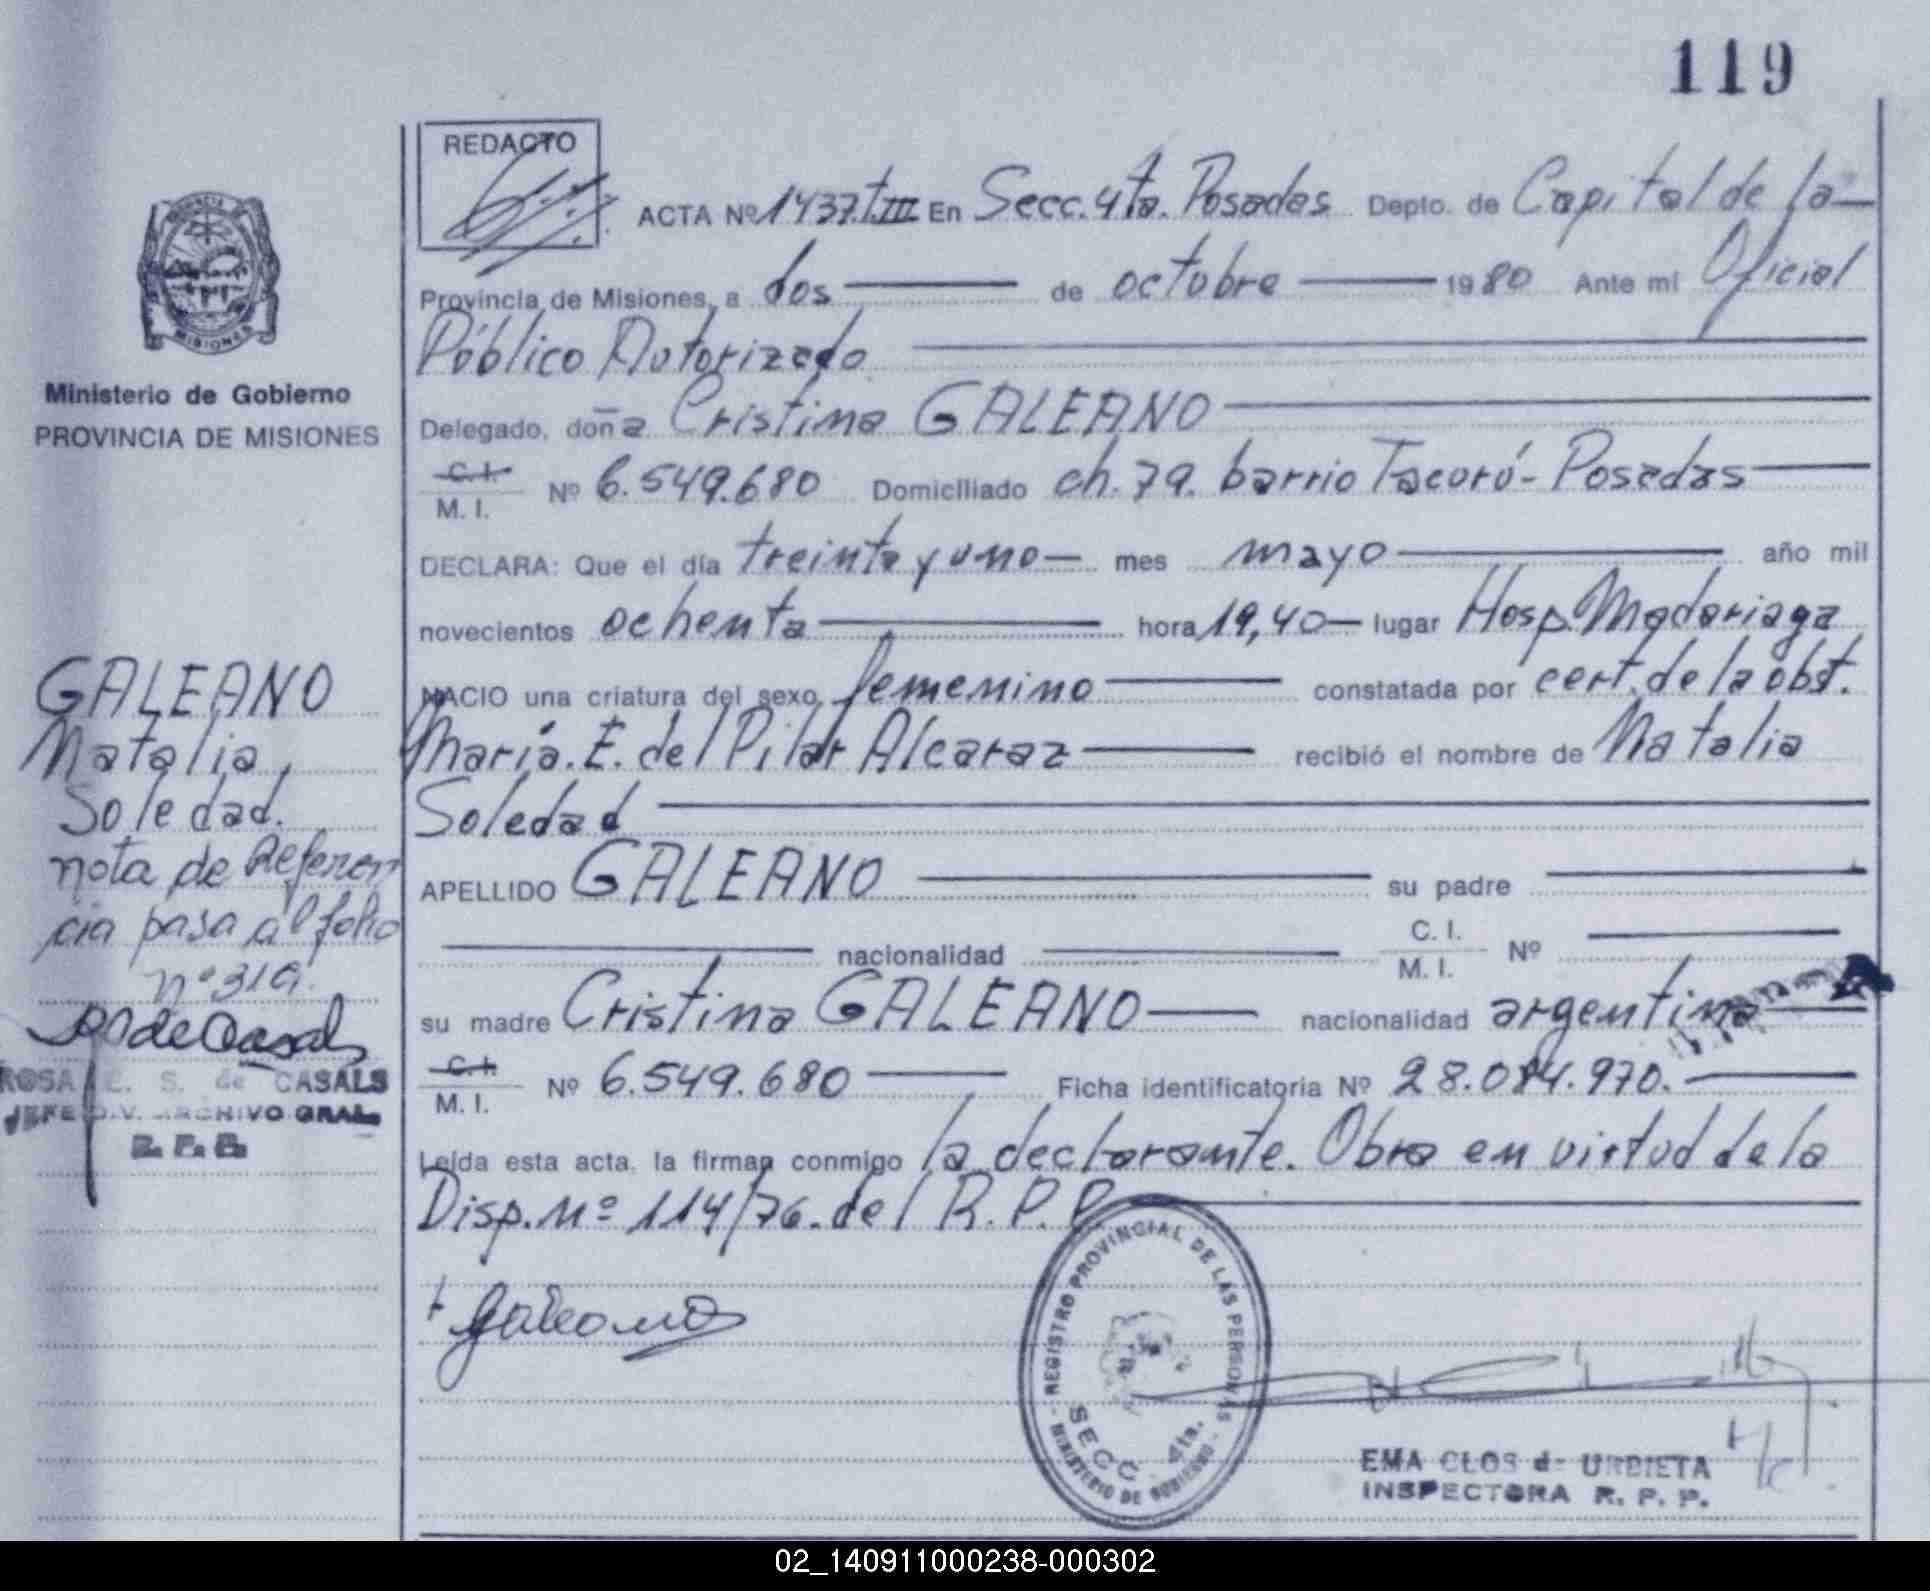 119
REDACTO
ACTA Nº 1437.T.III En Secc. 4ta. Posadas Depto. de Capital de la
Provincia de Misiones, a dos de octubre 1980 Ante mi Oficial
Público Autorizado
Delegado, doña Cristina GALEANO
C. I.
M. I. Nº 6.549.680 Domiciliado ch. 79. barrio Tacurú - Posadas
DECLARA: Que el día treinta y uno mes mayo año mil
novecientos ochenta hora 19,40 lugar Hosp. Madariaga
NACIO una criatura del sexo femenino constatada por cert. de la obst.
María. E. del Pilar Alcaraz recibió el nombre de Natalia
Soledad
APELLIDO GALEANO su padre
nacionalidad C. I.
M. I. Nº
su madre Cristina GALEANO nacionalidad argentina
C. I.
M. I. Nº 6.549.680 Ficha identificatoria Nº 28.084.970.
Leída esta acta, la firman conmigo la declarante. Obra en virtud de la
Disp. Nº 114/76. del R. P. P.
Galeano
REGISTRO PROVINCIAL DE LAS PERSONAS
SECC. 4ta.
MINISTERIO DE GOBIERNO
EMA CLOS de URBIETA
INSPECTORA R. P. P.
PROVINCIA DE MISIONES
Ministerio de Gobierno
PROVINCIA DE MISIONES
GALEANO
Natalia
Soledad.
nota de Referen
cia pasa al folio
nº 319.
ROSA E. S. de CASALS
JEFE DIV. ARCHIVO GRAL
02_140911000238-000302